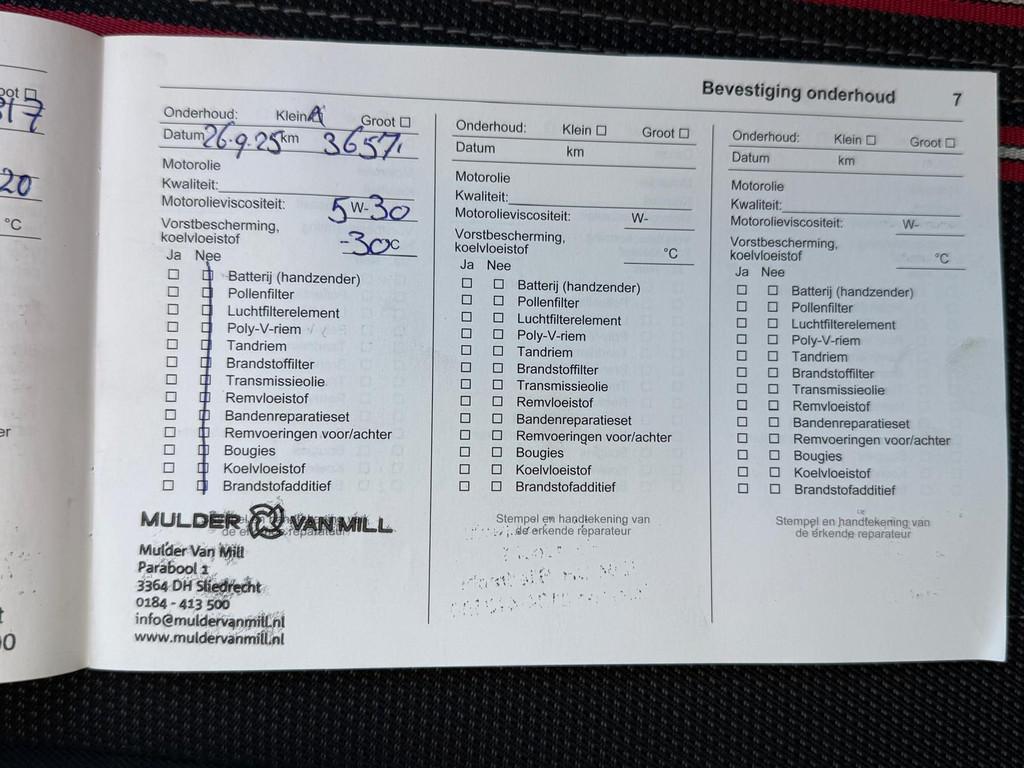 oot ☐
17
20
°C
er
t
00
Bevestiging onderhoud 7
Onderhoud: Klein Groot ☐
Datum 26.9.25 km 3657
Motorolie
Kwaliteit:
Motorolieviscositeit: 5W-30
Vorstbescherming,
koelvloeistof -30°C
Ja Nee
Batterij (handzender)
Pollenfilter
Luchtfilterelement
Poly-V-riem
Tandriem
Brandstoffilter
Transmissieolie
Remvloeistof
Bandenreparatieset
Remvoeringen voor/achter
Bougies
Koelvloeistof
Brandstofadditief
MULDER VAN MILL
Mulder Van Mill
Parabool 1
3364 DH Sliedrecht
0184 - 413 500
info@muldervanmill.nl
www.muldervanmill.nl
Onderhoud: Klein ☐ Groot ☐
Datum km
Motorolie
Kwaliteit:
Motorolieviscositeit: W-
Vorstbescherming,
koelvloeistof °C
Ja Nee
☐ ☐ Batterij (handzender)
☐ ☐ Pollenfilter
☐ ☐ Luchtfilterelement
☐ ☐ Poly-V-riem
☐ ☐ Tandriem
☐ ☐ Brandstoffilter
☐ ☐ Transmissieolie
☐ ☐ Remvloeistof
☐ ☐ Bandenreparatieset
☐ ☐ Remvoeringen voor/achter
☐ ☐ Bougies
☐ ☐ Koelvloeistof
☐ ☐ Brandstofadditief
Stempel en handtekening van
de erkende reparateur
Onderhoud: Klein ☐ Groot ☐
Datum km
Motorolie
Kwaliteit:
Motorolieviscositeit: W-
Vorstbescherming,
koelvloeistof °C
Ja Nee
☐ ☐ Batterij (handzender)
☐ ☐ Pollenfilter
☐ ☐ Luchtfilterelement
☐ ☐ Poly-V-riem
☐ ☐ Tandriem
☐ ☐ Brandstoffilter
☐ ☐ Transmissieolie
☐ ☐ Remvloeistof
☐ ☐ Bandenreparatieset
☐ ☐ Remvoeringen voor/achter
☐ ☐ Bougies
☐ ☐ Koelvloeistof
☐ ☐ Brandstofadditief
Stempel en handtekening van
de erkende reparateur